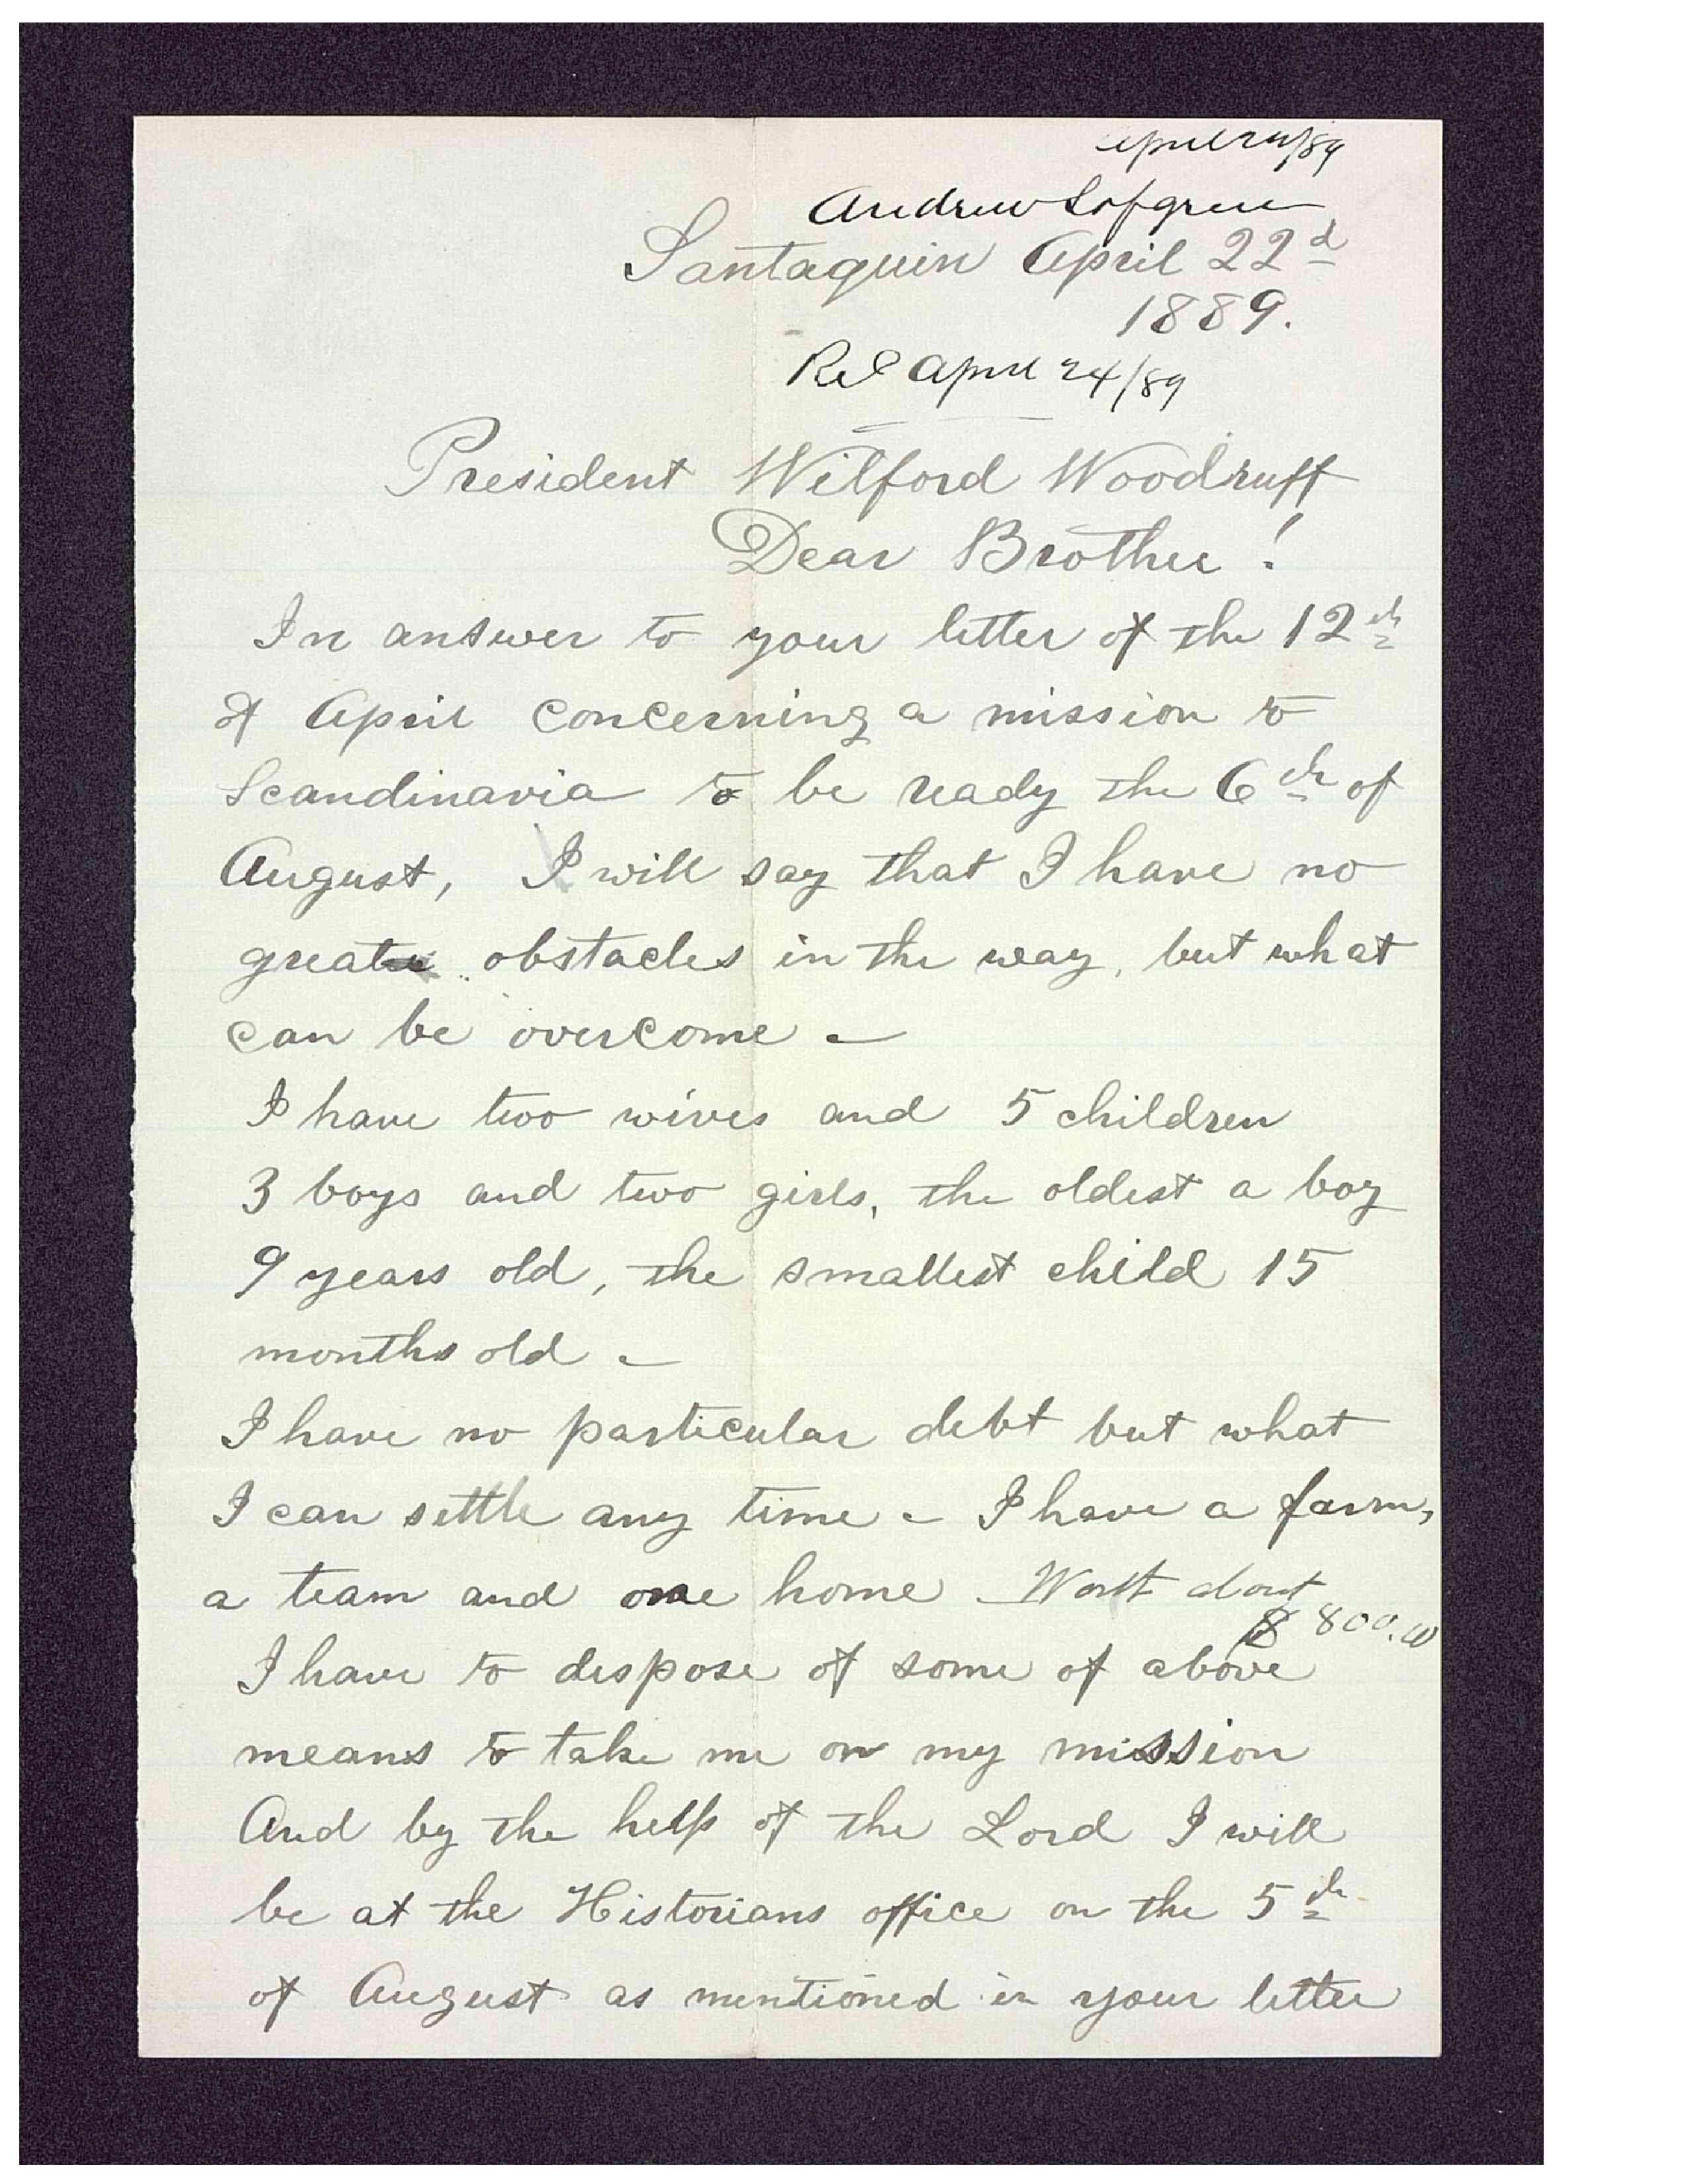 April 22/89
Andrew Lofgren
Santaquin April 22d
1889.
Rec April 24/89
President Wilford Woodruff
Dear Brother!
In answer to your letter of the 12th
of April concerning a mission to
Scandinavia to be ready the 6th of
August, I will say that I have no
great obstacles in the way, but what
can be overcome -
I have two wives and 5 children
3 boys and two girls, the oldest a boy
9 years old, the smallest child 15
months old -
I have no particular debt but what
I can settle any time - I have a farm,
a team and one home Worth about
$ 800.00
I have to dispose of some of above
means to take me on my mission
And by the help of the Lord I will
be at the Historians office on the 5th
of August as mentioned in your letter